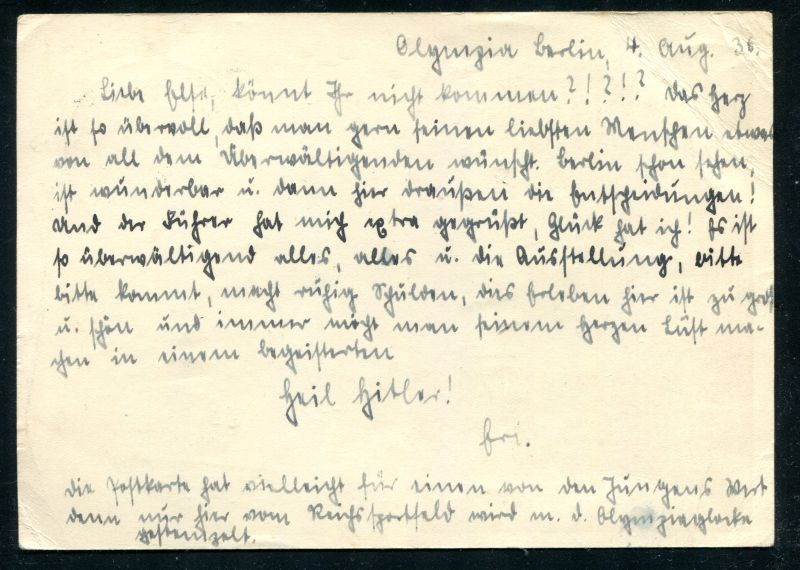 Olympia Berlin, 4. Aug. 36.
Liebe Else, könnt Ihr nicht kommen?!?!? Das Herz
ist so übervoll, daß man gern seinen liebsten Menschen etwas
von all dem Überwältigenden wünscht. Berlin schon sehen,
ist wunderbar u. dann hier draußen die Entscheidungen!
Und der Führer hat mich extra gegrüßt, Glück hat ich! Es ist
so überwältigend alles, alles u. die Ausstellung, bitte
bitte kommt, macht ruhig Schulden, dies Erleben hier ist zu groß
u. schön und immer möcht man seinem Herzen Luft ma-
chen in einem begeisterten
Heil Hitler!
Eri.
Die Postkarte hat vielleicht für einen von den Jungens Wert
denn nur hier vom Reichssportfeld wird m. d. Olympiaglocke
gestempelt.